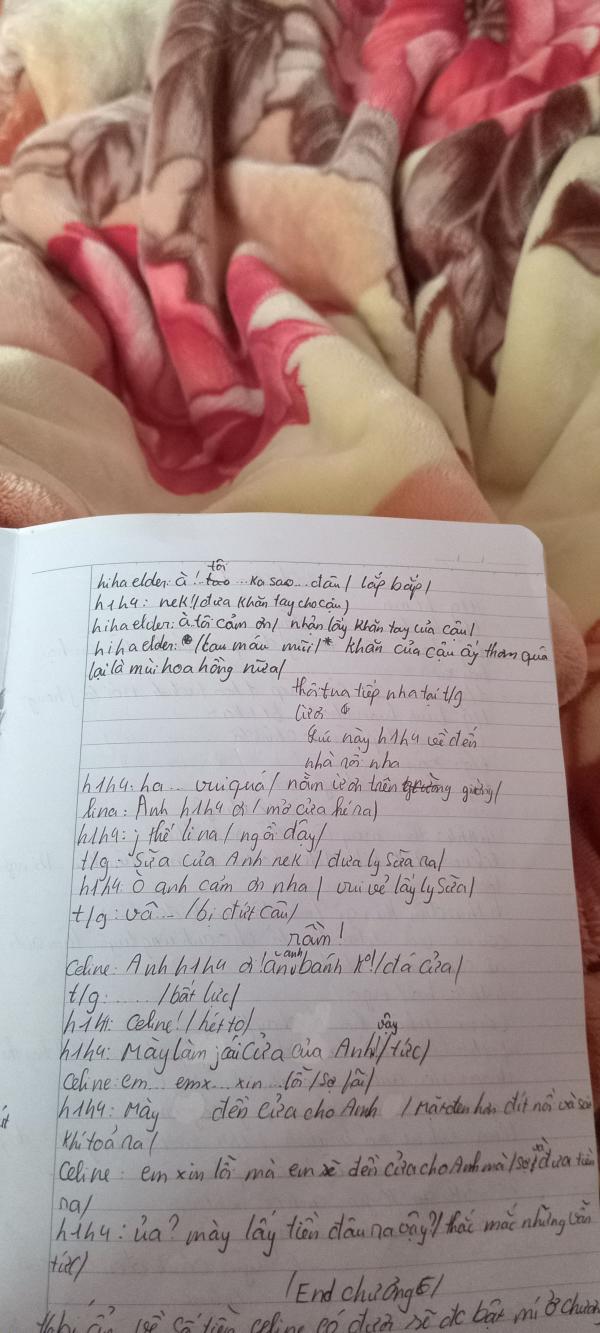 hihaelder: à! tôi ... ko sao... đâu / lắp bắp/
h1h4: nek!/đưa khăn tay cho cậu/
hihaelder: à tôi cảm ơn/ nhận lấy khăn tay của cậu/
hihaelder: /tau máu mũi/* khăn của cậu ấy thơm quá
lại là mùi hoa hồng nữa/
thôi tua tiếp nha tại t/g
lười
lúc này h1h4 về đến
nhà rồi nha
h1h4: ha... vui quá/ nằm ườn trên giường/
lina: Anh h1h4 ơi/ mở cửa hé ra/
h1h4: j thế lina/ ngồi dậy/
t/g: Sữa của Anh nek!/ đưa ly sữa ra/
h1h4: Ồ anh cảm ơn nha/ vui vẻ lấy ly sữa/
t/g: vâ... /bị đứt câu/
rầm!
Celine: Anh h1h4 ơi! anh ăn bánh ko!/đá cửa/
t/g: ...... /bất lực/
h1h4: Celine!/hét to/
h1h4: Mày làm j cái cửa của Anh vậy!/tức/
Celine: em... emx... xin... lỗi/sợ hãi/
h1h4: Mày đền cửa cho Anh /Mặt đen hơn đít nồi và sát
khí toả ra/
Celine: em xin lỗi mà em sẽ đền cửa cho Anh mà/sợ và đưa tiền
ra/
h1h4: ủa? mày lấy tiền đâu ra vậy?/ thắc mắc nhưng vẫn
tức/
/End chương 6/
ẩn về số tiền celine có được sẽ đc bật mí ở chương